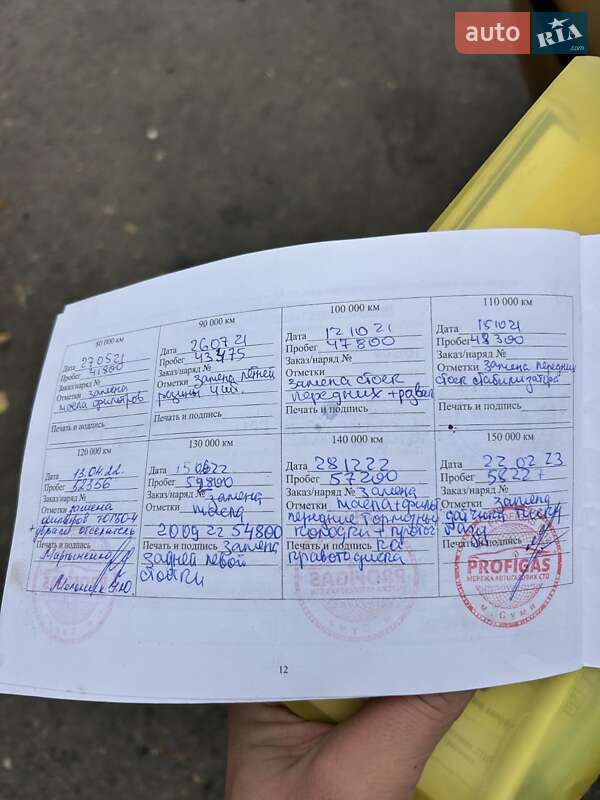 auto RIA
.com
80 000 км
Дата 27.05.21
Пробег 41800
Заказ/наряд №
Отметки замена
масла фильтров
Печать и подпись
90 000 км
Дата 26.07.21
Пробег 43475
Заказ/наряд №
Отметки замена летней
резины
Печать и подпись
100 000 км
Дата 12.10.21
Пробег 47800
Заказ/наряд №
Отметки
замена стоек
передних + развал
Печать и подпись
110 000 км
Дата 15.10.21
Пробег 48300
Заказ/наряд №
Отметки замена передних
стоек стабилизатора
Печать и подпись
120 000 км
Дата 13.04.22
Пробег 52356
Заказ/наряд №
Отметки замена
фильтров
Печать и подпись
130 000 км
Дата
Пробег
Заказ/наряд № замена
Отметки масла
20.09.22 54800
Печать и подпись замена
задней левой
стойки
140 000 км
Дата 28.12.22
Пробег 57200
Заказ/наряд № замена
Отметки масла + фильтр
передние тормозные
колодки +
Печать и подпись
правого диска
150 000 км
Дата 22.02.23
Пробег 5822
Заказ/наряд №
Отметки замена
Печать и подпись
PROFIGAS
МЕРЕЖА АВТОГАЗОВИХ СТО
м. Суми
12